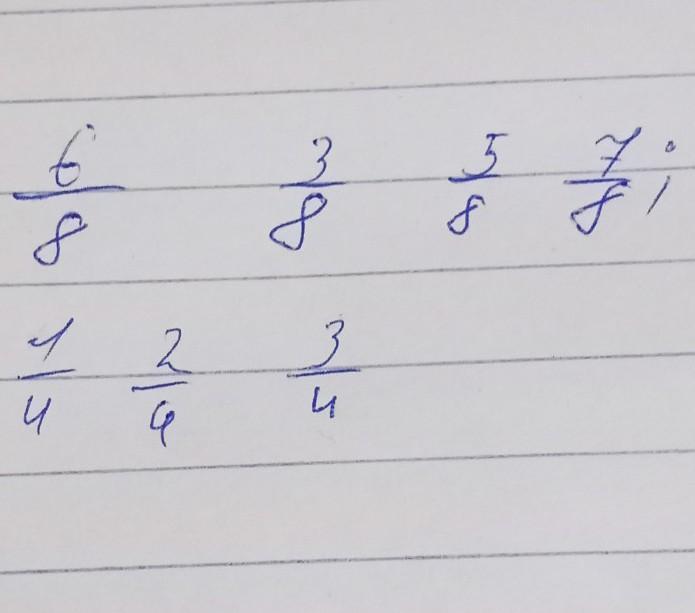 6/8 3/8 5/8 7/8;
1/4 2/4 3/4